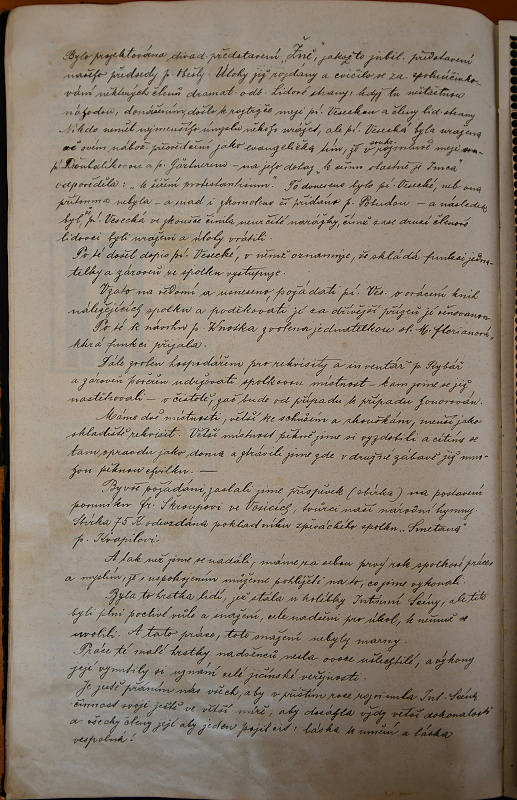 Bylo projektováno divad. představení „Žně“, jakožto jubil. představení
našeho předsedy p. Úlohy již rozdány a cvičilo se za spoluúčinko-
vání některých členů dramat. odb. Lidové strany, když tu nešťastnou
náhodou, donášením, došlo k roztržce mezi sl. Veseckou a členy lid. strany.
Nikdo neměl nejmenšího úmyslu někoho urážet, ale sl. Vesecká byla uražena
ve svém nábož. přesvědčení jako evangelička tím, že v soukr. rozmluvě mezi
p. Doubalíkovou a p. Gärtnerem – na jeho dotaz „k čemu vlastně je
odpověděla: „k šíření protestantismu.“ To doneseno bylo sl. Vesecké, neb ona
přítomna nebyla – a snad i zkomoleno či přidáno p. – a následek
byl, sl. Vesecká ve zkoušce činila neurčité narážky, čímž zase druzí členové
lidovci byli uraženi a úlohy vrátili.
Po té došel dopis sl. Vesecké, v němž oznamuje, že skládá funkci jedna-
telky a zároveň ze spolku vystupuje.
Vzato na vědomí a usneseno požádati sl. Ves. o vrácení knih
náležejících spolku a poděkovati jí za dřívější přízeň jí věnovanou.
Po té k návrhu p. Knoska zvolena jednatelkou sl. M. Florianová,
která funkci přijala.
Dále zvolen hospodářem pro rekvisity a inventář p. Rybář
a zároveň pověřen udržovati spolkovou místnost – kam jsme se již
nastěhovali – v čistotě, zač bude od případu k případu honorován.
Máme dvě místnosti, větší ke schůzím a zkouškám, menší jako
skladiště rekvisit. Větší místnost pěkně jsme si vyzdobili a cítíme se
tam opravdu jako doma a strávili jsme zde v družné zábavě již mno-
hou pěknou chvilku. —
Byvše požádáni, zaslali jsme příspěvek (sbírka) na postavení
pomníku Fr. Škroupovi ve Osicích, tvůrci naší národní hymny.
Sbírka 75 K odevzdána pokladníku zpěváckého spolku „Smetana“
p. Kvapilovi.
A tak než jsme se nadáli, máme za sebou prvý rok spolkové práce
a myslím, že s uspokojením můžeme pohlížeti na to, co jsme vykonali.
Byla to hrstka lidí, jež stála u kolébky Intimní Scény, ale tito
byli plni poctivé vůle a snažení, cele nadšeni pro úkol, k němuž se
uvolili. A tato práce, toto snažení nebyly marny.
Práce té malé hrstky nadšenců nesla ovoce ušlechtilé, a výkony
její vynutily si uznání celé jičínské veřejnosti.
Je jistě přáním nás všech, aby v příštím roce rozvinula Int. Scéna
činnost svoji ještě ve větší míře, aby dosáhla vždy větší dokonalosti
a všechny členy její aby jeden pojil cit: láska k umění a láska
vespolná!